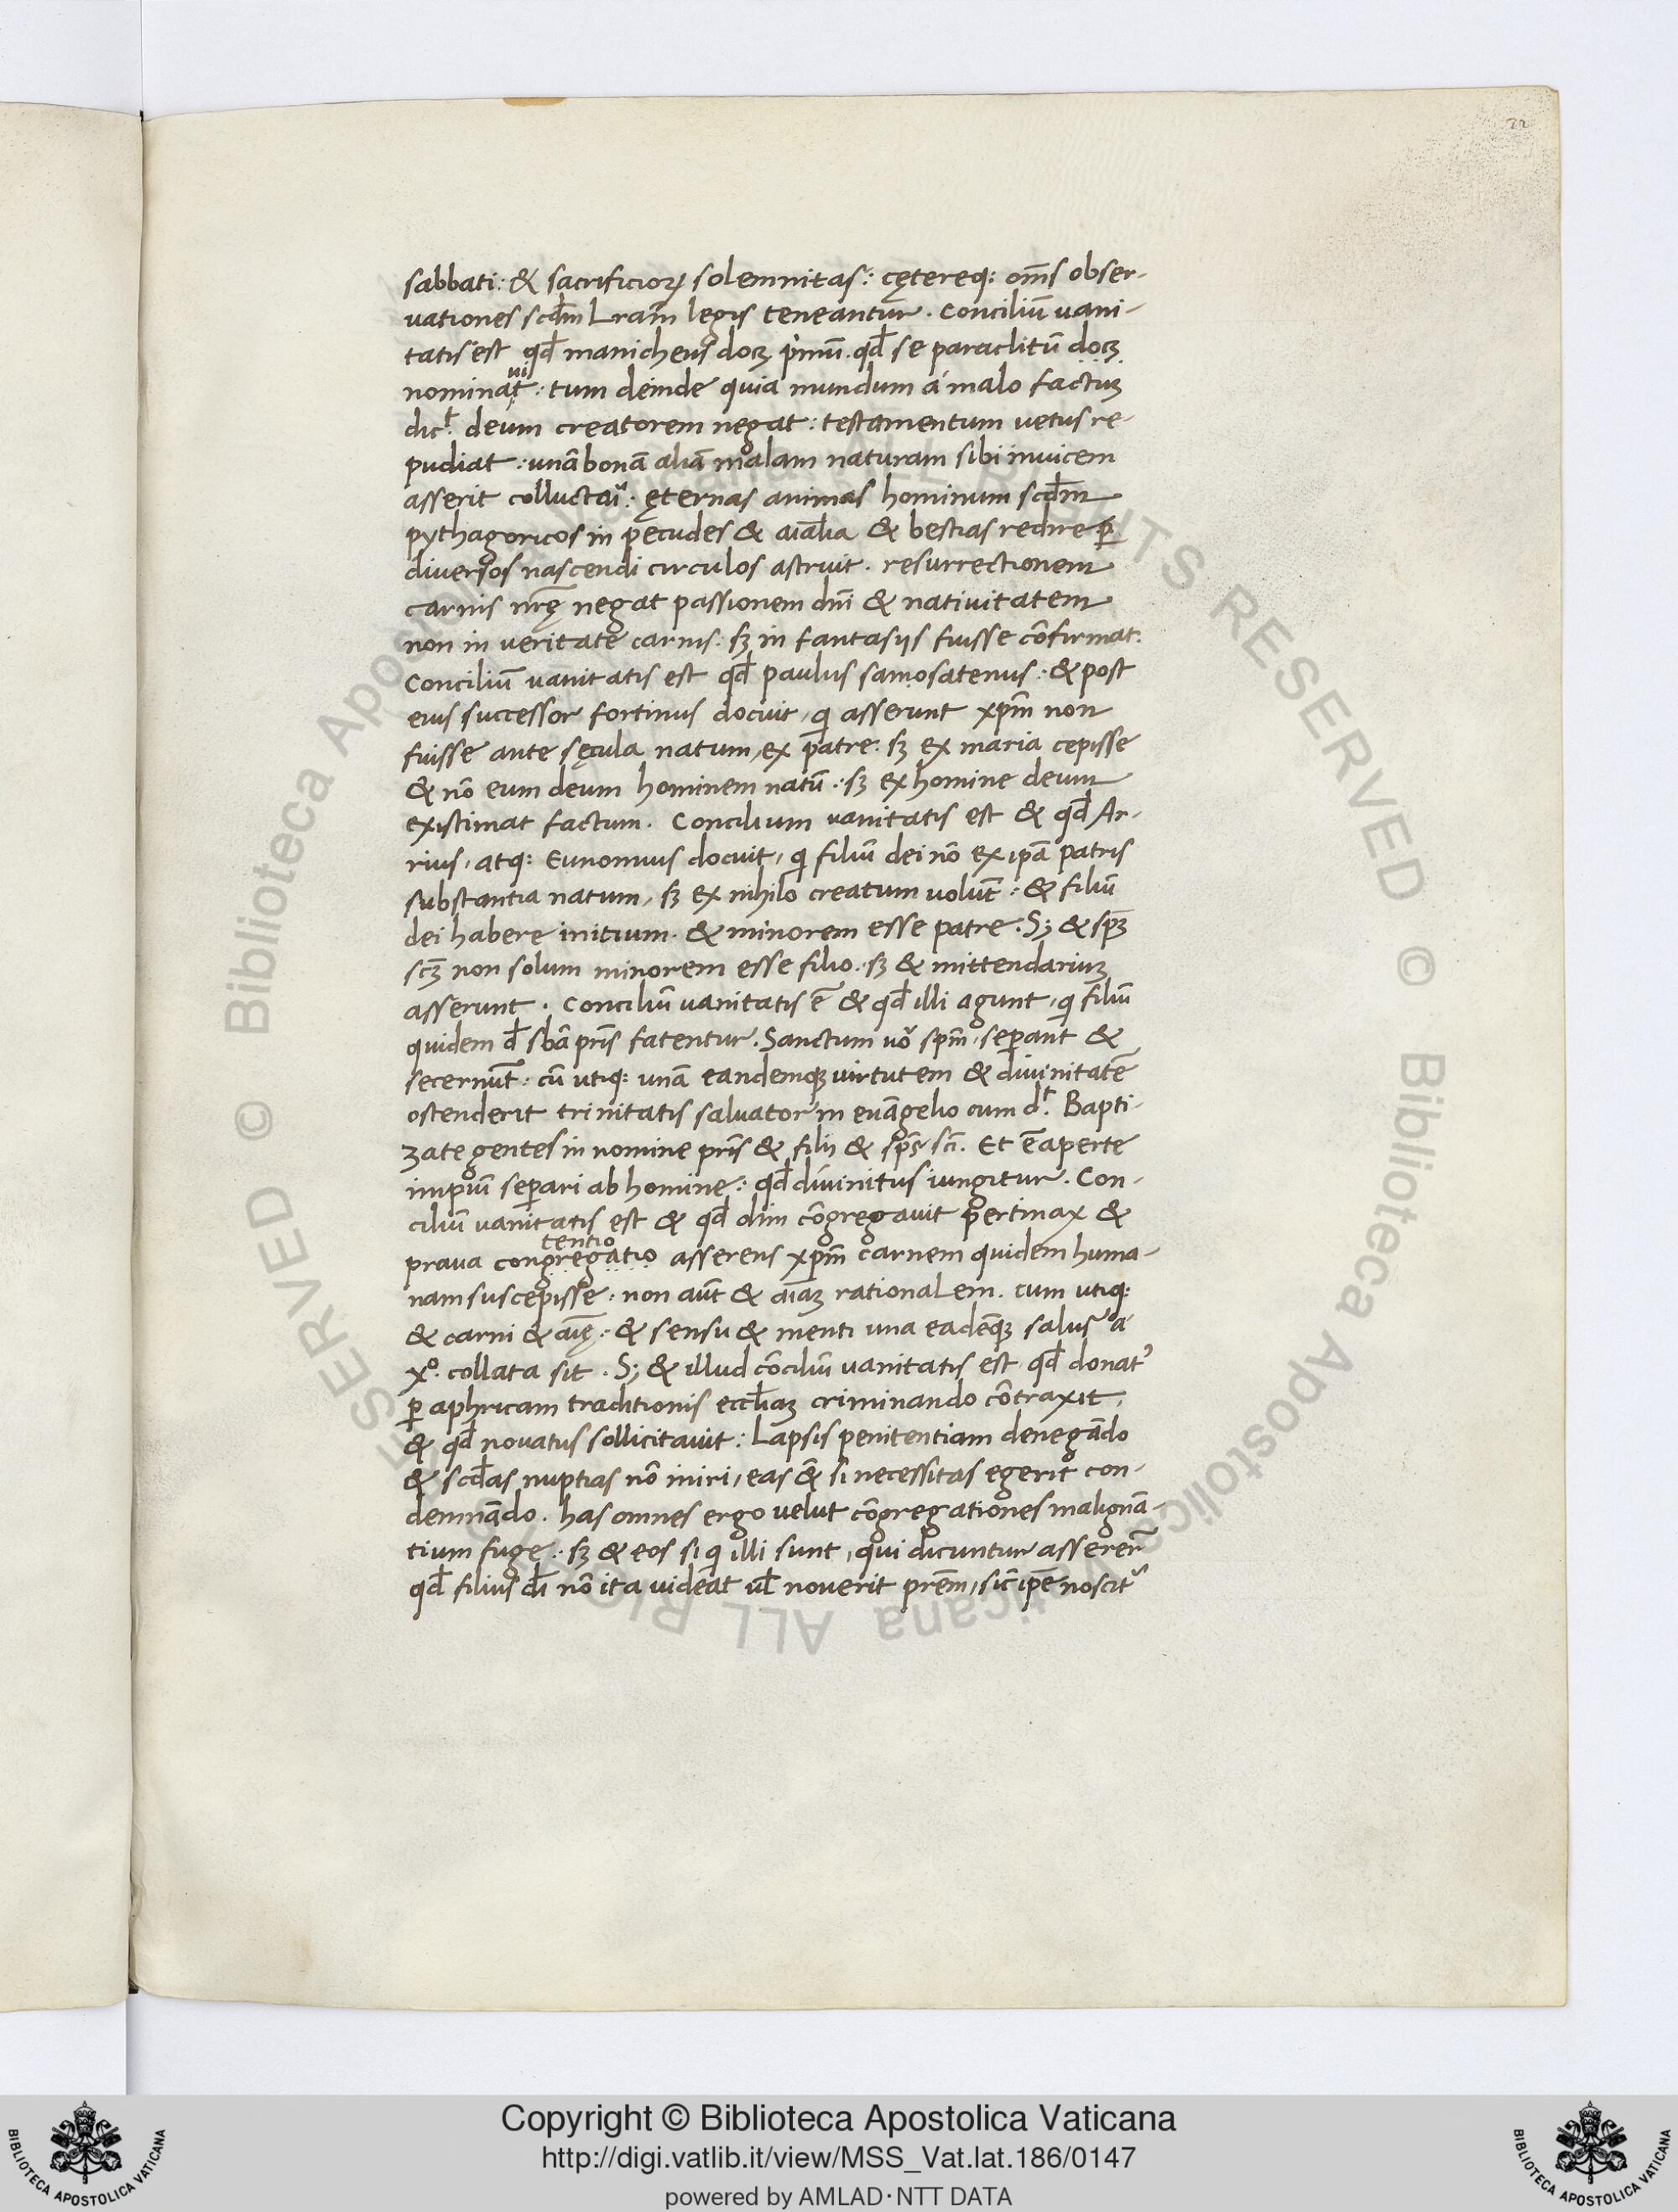 72
sabbati: & sacrificioꝝ solemnitas: cętereq: om̄s obser-
uationes scd̄m Lram̄ legis teneantur. Conciliū uani-
tatis est qd̄ manicheus docꝫ primū. qd̄ se paraclitū docꝫ
nominat: tum deinde quia mundum a malo factuꝫ
ui
dic̄t. deum creatorem negat: testamentum uetus re-
pudiat: unā bonā aliā malam naturam sibi inuicem
asserit colluctari: ęternas animas hominum scd̄m
pythagoricos in pecudes & aīalia & bestias redire ꝑ
diuersos nascendi circulos astruit. resurrectionem
carnis nr̄ę negat passionem dn̄i & natiuitatem
non in ueritate carnis: sꝫ in fantasijs fuisse cōfirmat.
Conciliū uanitatis est qd̄ Paulus samosatenus: & post
eius successor fortinus docuit, qi asserunt xp̄m non
fuisse ante sęcula natum, ex patre: sꝫ ex maria cepisse
& nō eum deum hominem natū: sꝫ ex homine deum
existimat factum. Concilium uanitatis est & qd̄ Ar-
rius, atq: Eunomius docuit, qi filiū dei nō ex ip̄a patris
substantia natum, sꝫ ex nihilo creatum uolūt: & filiū
dei habere initium. & minorem esse patre. S; & sp̄ꝫ
sc̄ꝫ non solum minorem esse filio: sꝫ & mittendariuꝫ
asserunt. Conciliū uanitatis ē & qd̄ illi agunt, qi filiū
quidem d̄ sb̄a pr̄is fatentur. Sanctum uō sp̄m, seꝑant &
secernūt: cū utiq: unā eandemqꝫ uirtutem & diuinitatē
ostenderit trinitatis saluator in euāgelio cum d̄t. Bapti-
zate gentes in nomine pr̄is & filij & sp̄s sc̄i. Et ē aperte
impiū seꝑari ab homine: qd̄ diuinitus iungitur. Con-
ciliū uanitatis est & qd̄ olim cōgregauit pertinax &
tentio
praua congregatio asserens xp̄m carnem quidem huma-
nam suscepisse: non aūt & aīaꝫ rationaLem. cum utiq:
& carni & aīę: & sensu & menti una eadēqꝫ salus a
xº. collata sit. S; & illud cōciliū uanitatis est qd̄ donatꝰ
ꝑ aphricam traditionis eccl̄iaꝫ criminando cōtraxit,
& qd̄ nouatus sollicitauit: Lapsis penitentiam denegādo
& scd̄as nuptias nō iniri, eas qm̄ si necessitas egerit con-
demnādo. has omnes ergo uelut cōgregationes malignā-
tium fuge: sꝫ & eos si qi illi sunt, qui dicuntur asserer̄
qd̄ filius d̄i nō ita uideat ul̄ nouerit pr̄em, sic̄ ip̄e noscit᷑
Copyright © Biblioteca Apostolica Vaticana
http://digi.vatlib.it/view/MSS_Vat.lat.186/0147
powered by AMLAD·NTT DATA